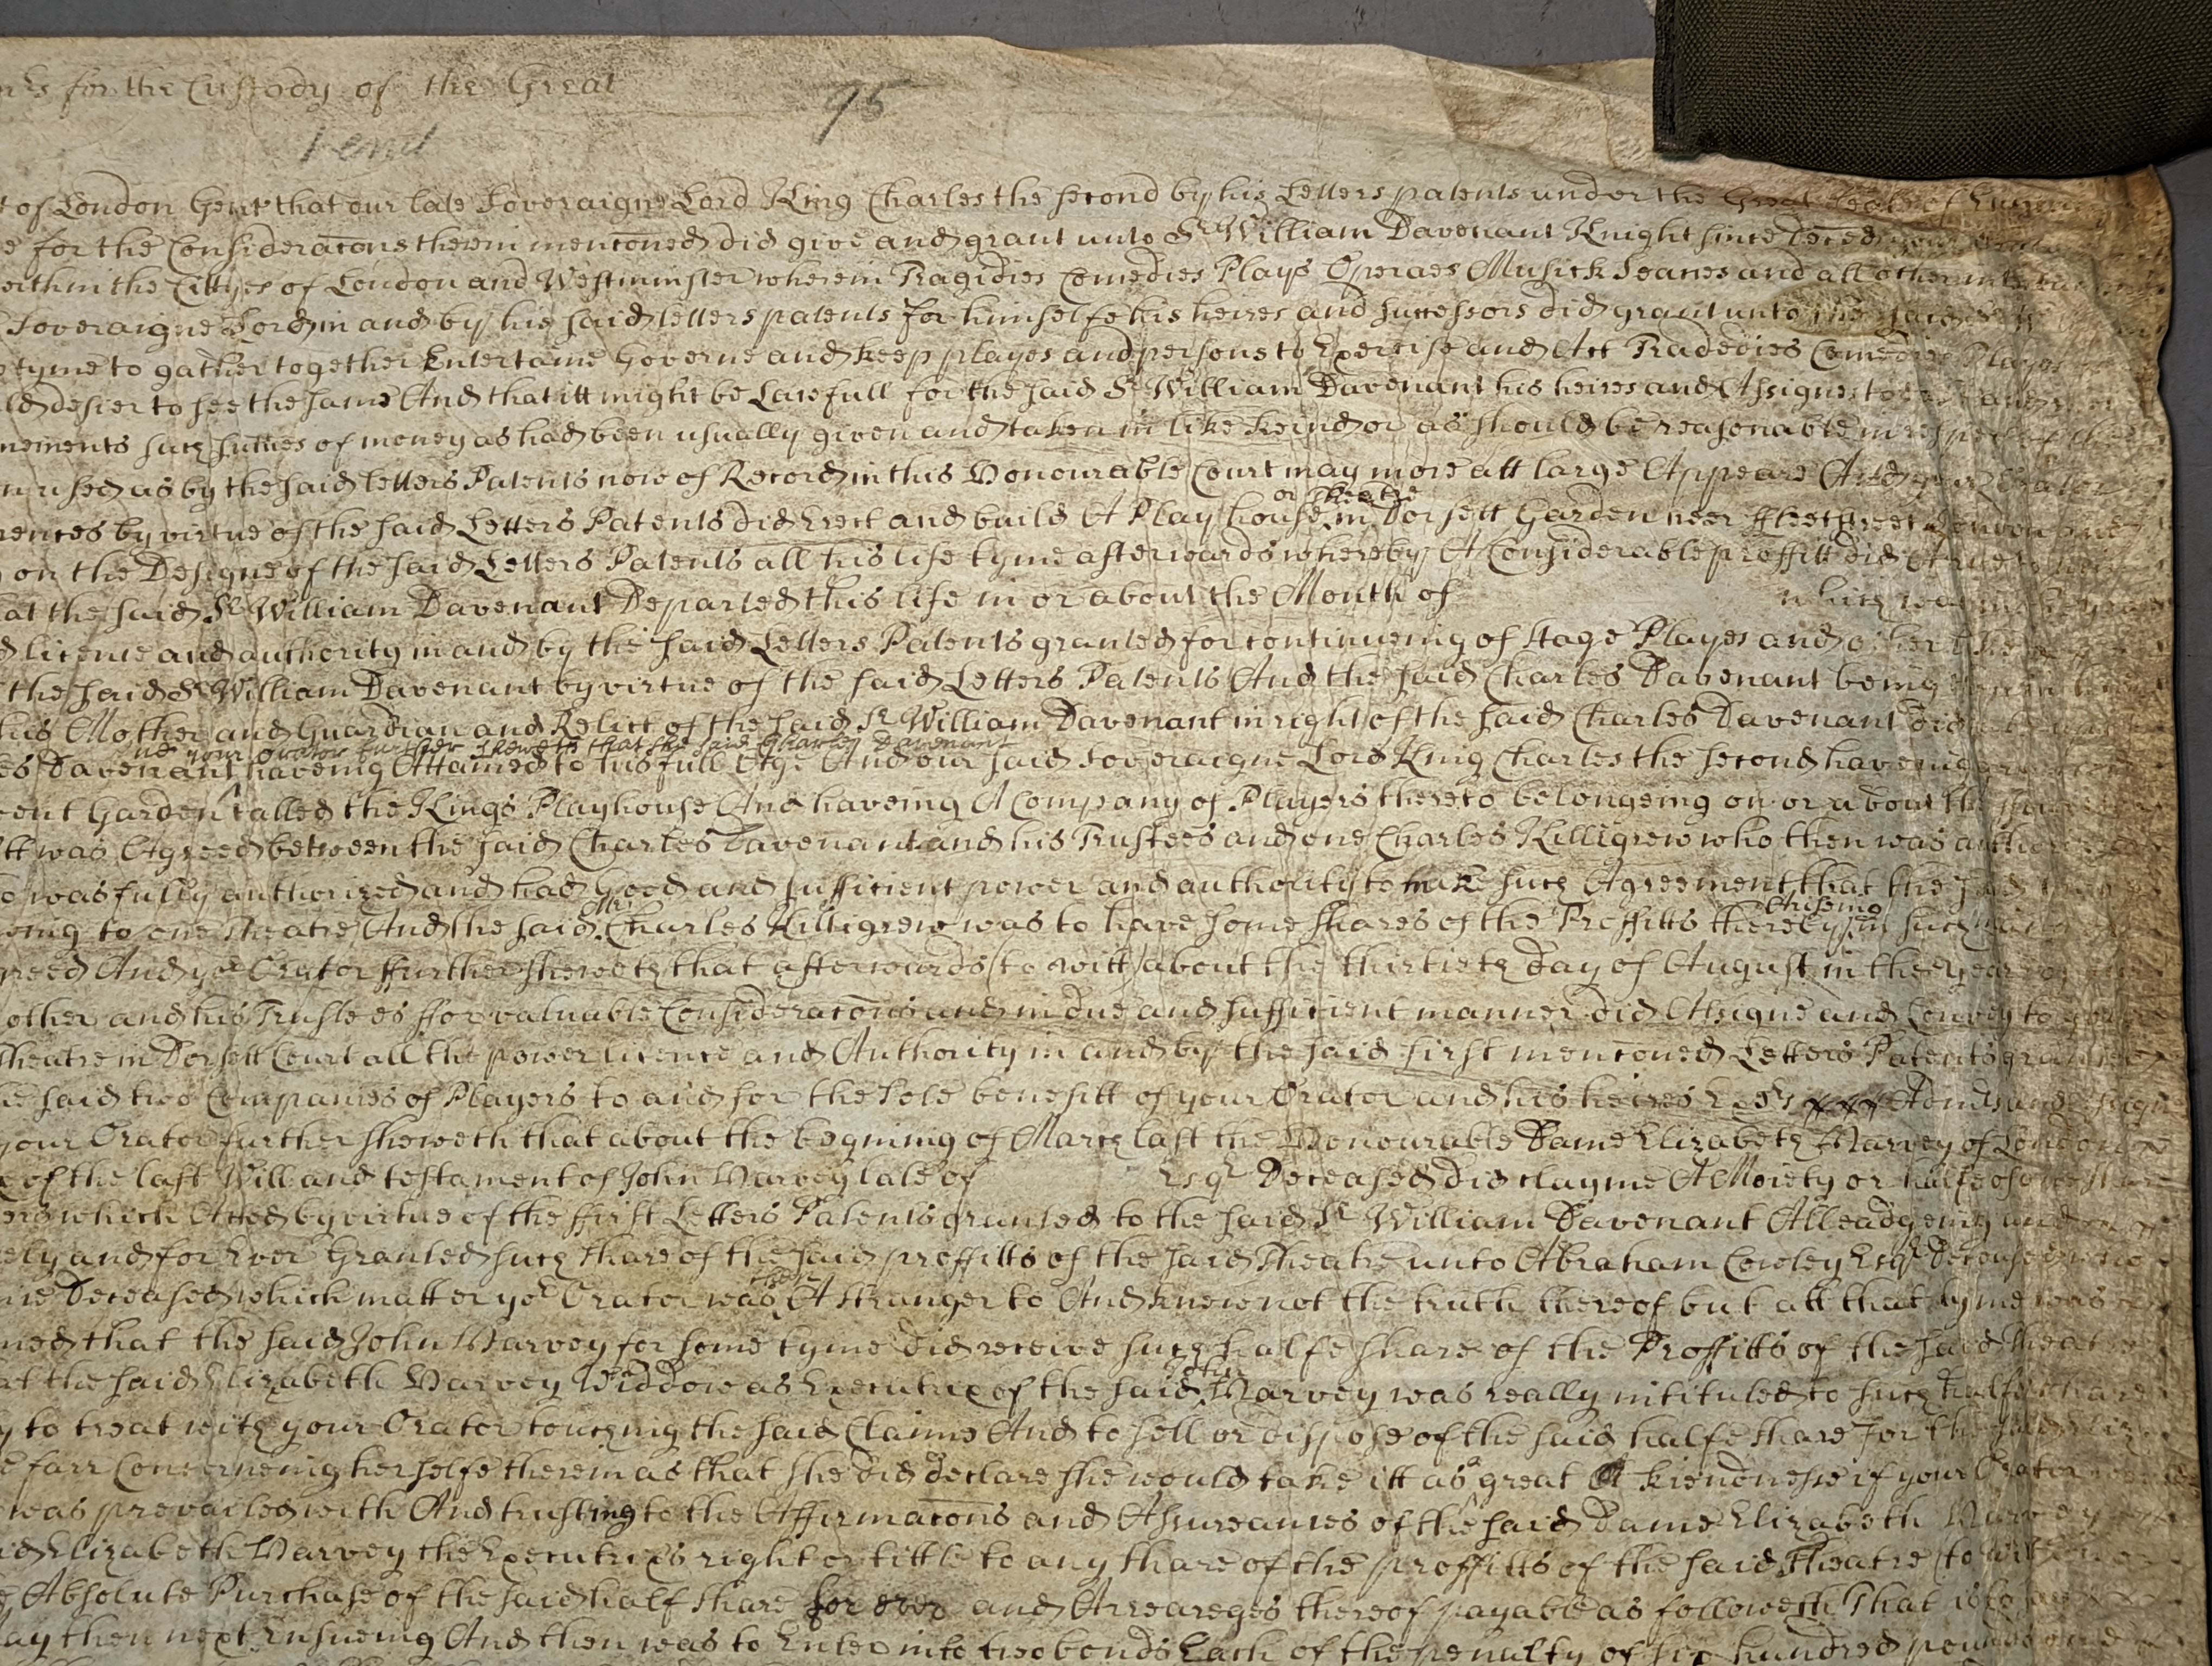 for the Custody of the Great
95
of London Gent that our late Soveraigne Lord King Charles the second by his Letters patents under the Great Seale of
for the Consideracons therein menconed did give and grant unto Sr William Davenant Knight since
within the Cittyes of London and Westminster wherein Tragidies Comedies Plays Operaes Musick Sceanes and all other
Soveraigne Lord in and by his said letters patents for himselfe his heires and successors did grant unto the said
tyme to gather together Entertaine Governe and keep players and persons to Exercise and Act Tradedies Comedies Playes
desier to see the same And that itt might be Lawfull for the said Sr William Davenant his heires and Assignes to
such summes of money as had been usually given and taken in like keind or as should be reasonable in respect of the
as by the said letters Patents now of Record in this Honourable Court may more att large Appeare And your Orator
by virtue of the said Letters Patents did Erect and build A Play house or Theatre in Dorsett Garden neer ffleetstreet London
on the Designe of the said Letters Patents all his life tyme afterwards whereby A Considerable proffitt did
that the said Sr William Davenant Departed this life in or about the Month of which was in the year
licence and authority in and by the said Letters Patents granted for continueing of Stage Playes and other
the said Sr William Davenant by virtue of the said Letters Patents And the said Charles Davenant being
his Mother and Guardian and Relict of the said Sr William Davenant in right of the said Charles Davenant did
your orator further sheweth that the said Charles Davenant
Davenant haveing Attained to his full Age And our said Soveraigne Lord King Charles the second haveing
Garden called the Kings Playhouse And haveing A Company of Players thereto belongeing on or about the
itt was Agreed between the said Charles Davenant and his Trustees and one Charles Killigrew who then was
was fully authorized and had Good and sufficient power and authority to make such Agreement that the said
to one Theatre And the said Mr Charles Killigrew was to have some shares of the Proffitts thereby Ariseing in such
And yor Orator ffurther sheweth that afterwards (to witt) about the thirtieth day of August in the year
other and his Trustees ffor valuable Consideracons and in due and sufficient manner did Assigne and Convey to
Theatre in Dorsett Court all the power licence and Authority in and by the said first menconed Letters Patents
said two Companies of Players to and for the sole benefitt of your Orator and his heires
your Orator further sheweth that about the begining of March last the Honourable Dame Elizabeth Harvey of London
of the last Will and testament of John Harvey late of Esqr Deceased did clayme A Moiety or halfe of
which Acted by virtue of the ffirst Letters Patents granted to the said Sr William Davenant Alleadgeing
and for Ever Granted such share of the said proffitts of the said Theatre unto Abraham Cowley Esqr Deceased who
Deceased which matter yor Orator was then A stranger to And knew not the truth thereof but att that tyme was
that the said John Harvey for some tyme did receive such halfe share of the Proffitts of the said Theatre
the said Elizabeth Harvey Widdow as Executrix of the said John Harvey was really intituled to such halfe share
to treat with your Orator touching the said Claime And to sell or dispose of the said halfe share For the said
farr Concerneing her selfe therein as that she did declare she would take itt as great A kiendnesse if your Orator
was prevailed with And trusting to the Affirmacons and Assureances of the said Dame Elizabeth Harvey
Elizabeth Harvey the Executrixs right or tittle to any share of the proffitts of the said Theatre
Absolute Purchase of the said half share for ever and Arreareges thereof payable as followeth That is to say
then next Ensueing And then was to Enter into two bonds Each of the penalty of six hundred pounds